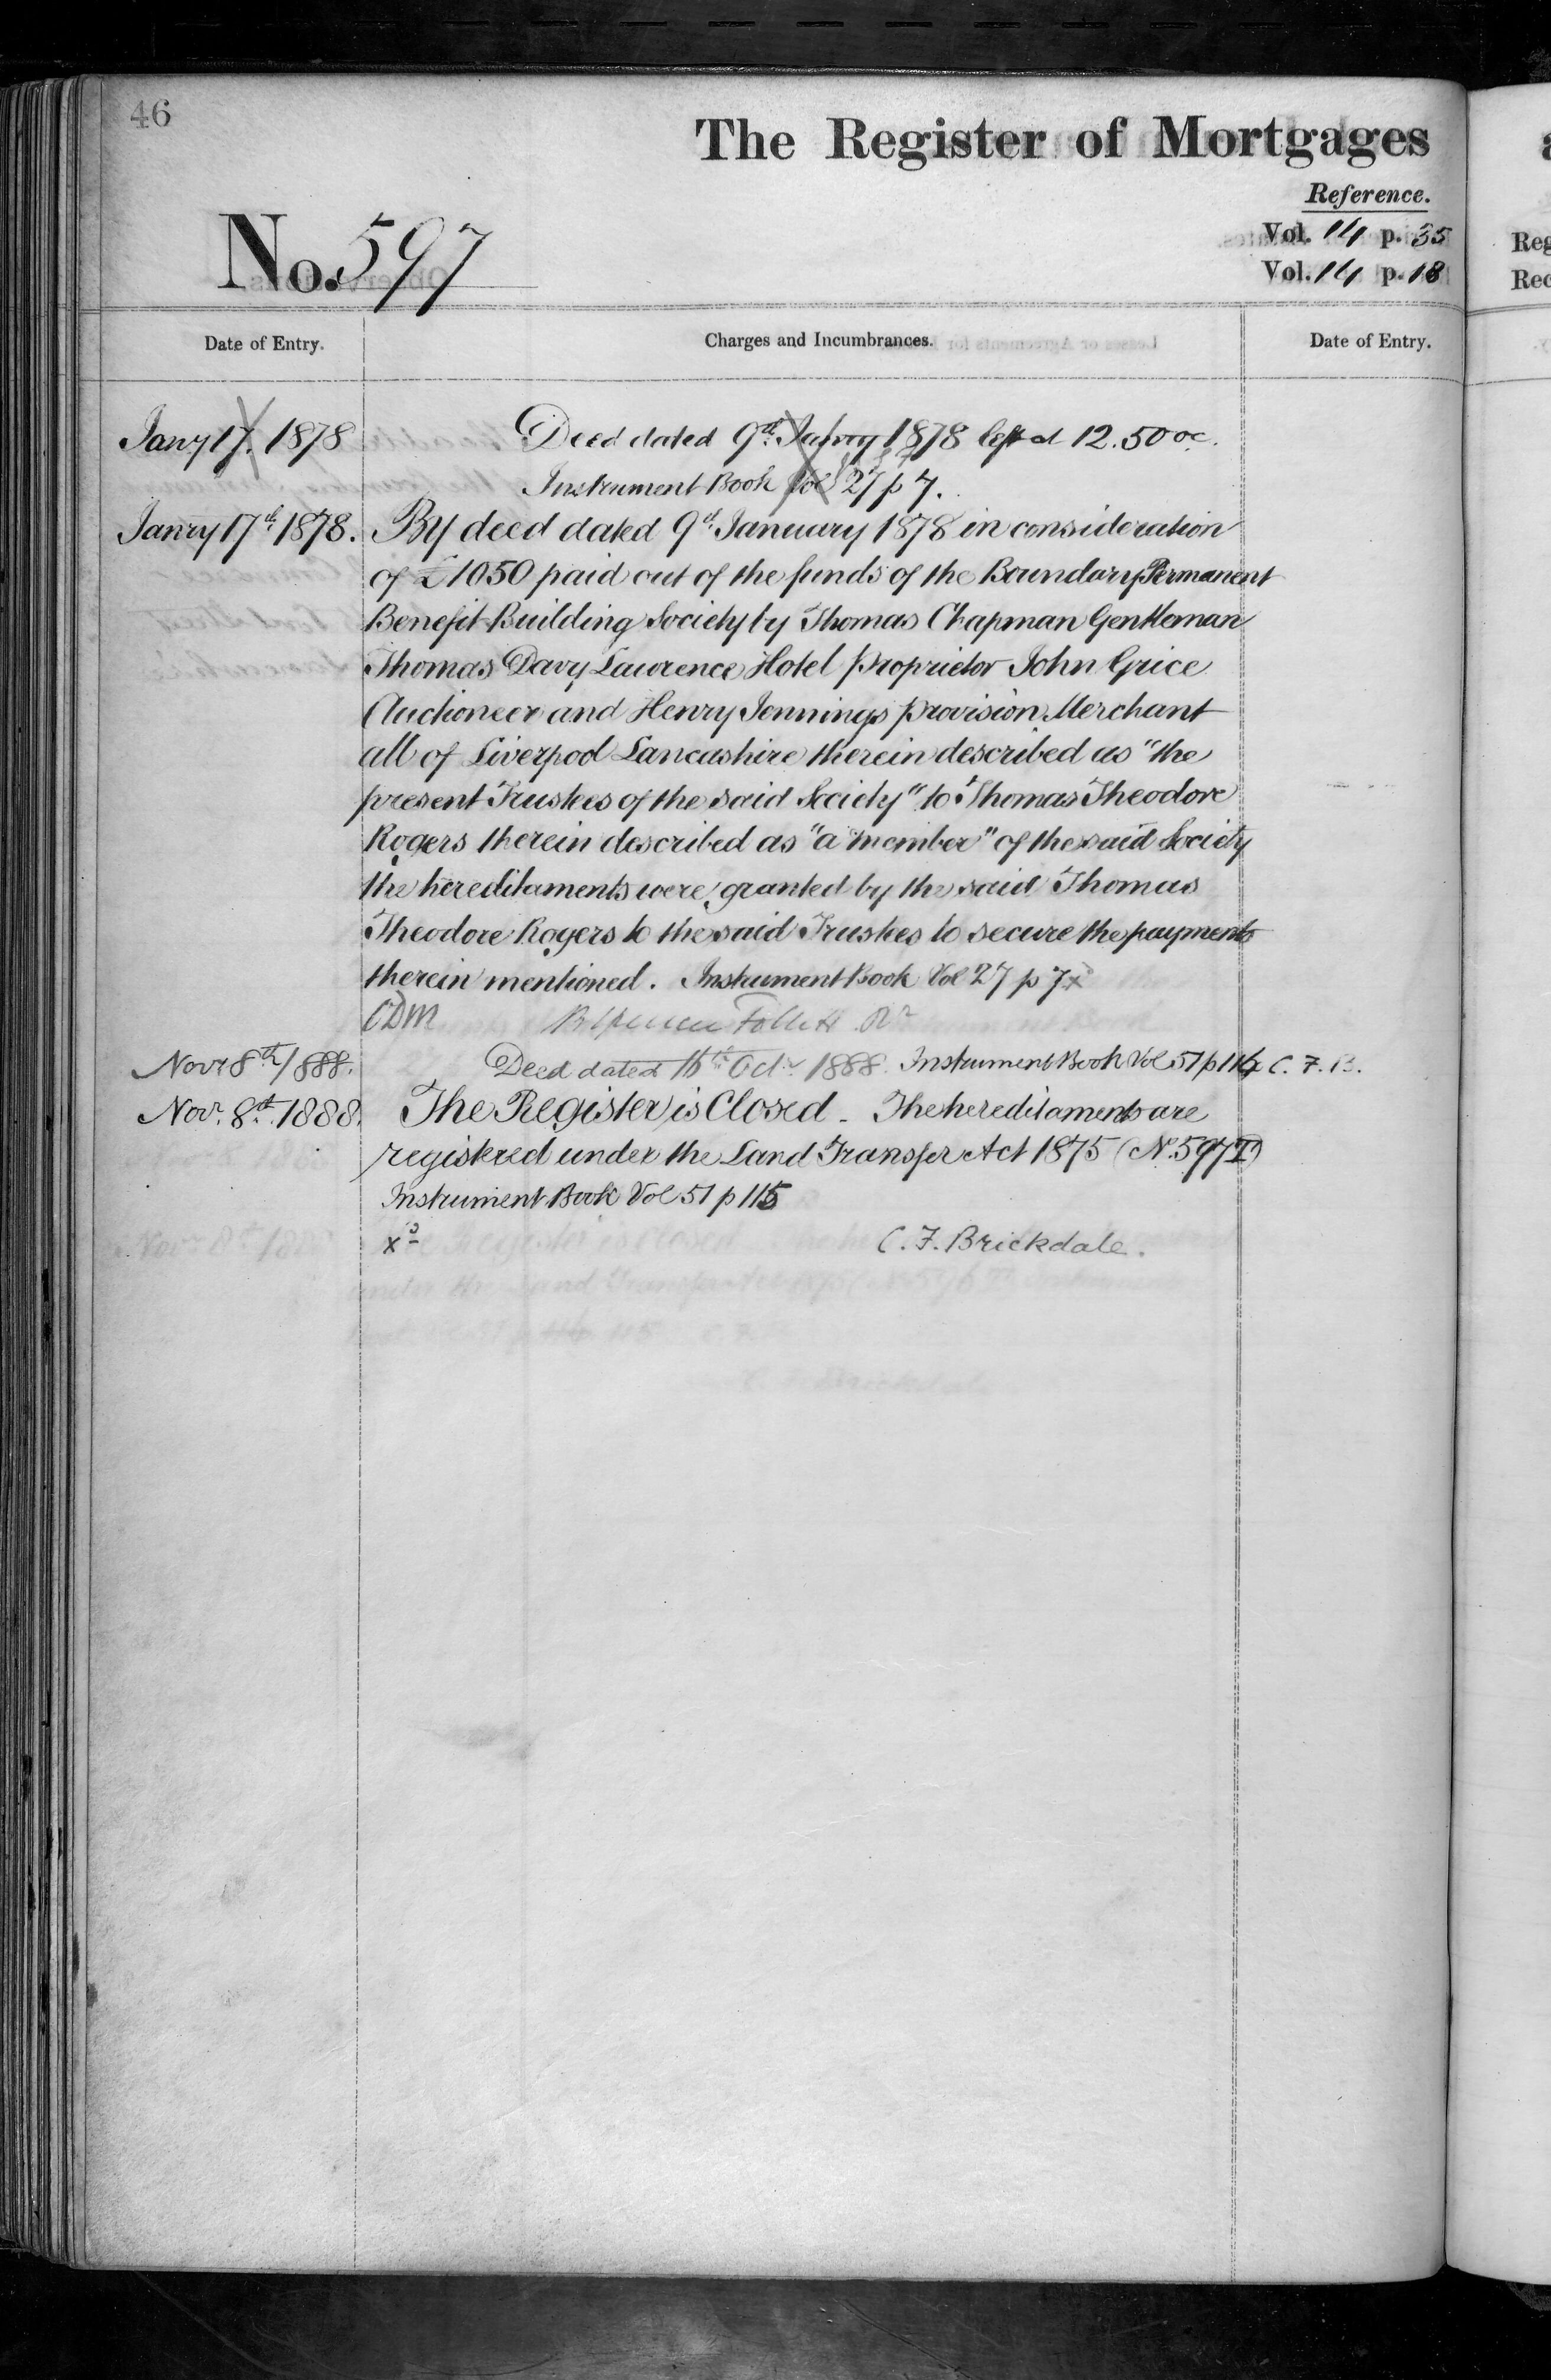 46
The Register of Mortgages
Reference.
No. 597
Vol. 14 p. 35
Vol. 14 p. 18
Date of Entry.
Charges and Incumbrances.
Date of Entry.
Jany 17. 1878
Deed dated 9th Janry 1878 left at 12.50 oc.
Instrument Book Vol 27 p 7.
Janry 17th 1878.
By deed dated 9th January 1878 in consideration
of £1050 paid out of the funds of the Boundary Permanent
Benefit Building Society by Thomas Chapman Gentleman
Thomas Davy Laurence Hotel proprietor John Grice
Auctioneer and Henry Jennings provision Merchant
all of Liverpool Lancashire therein described as "the
present Trustees of the said Society" to Thomas Theodore
Rogers therein described as "a member" of the said Society
the hereditaments were granted by the said Thomas
Theodore Rogers to the said Trustees to secure the payments
therein mentioned. Instrument Book Vol 27 p 7 x
Follett
Novr 8th 1888.
Deed dated 16th Octr 1888. Instrument Book Vol 51 p 114 C. F. B.
Novr. 8th 1888.
The Register is Closed - The hereditaments are
registered under the Land Transfer Act 1875 (No. 597T)
Instrument Book Vol 51 p 115
C. F. Brickdale.
Reg
Rec